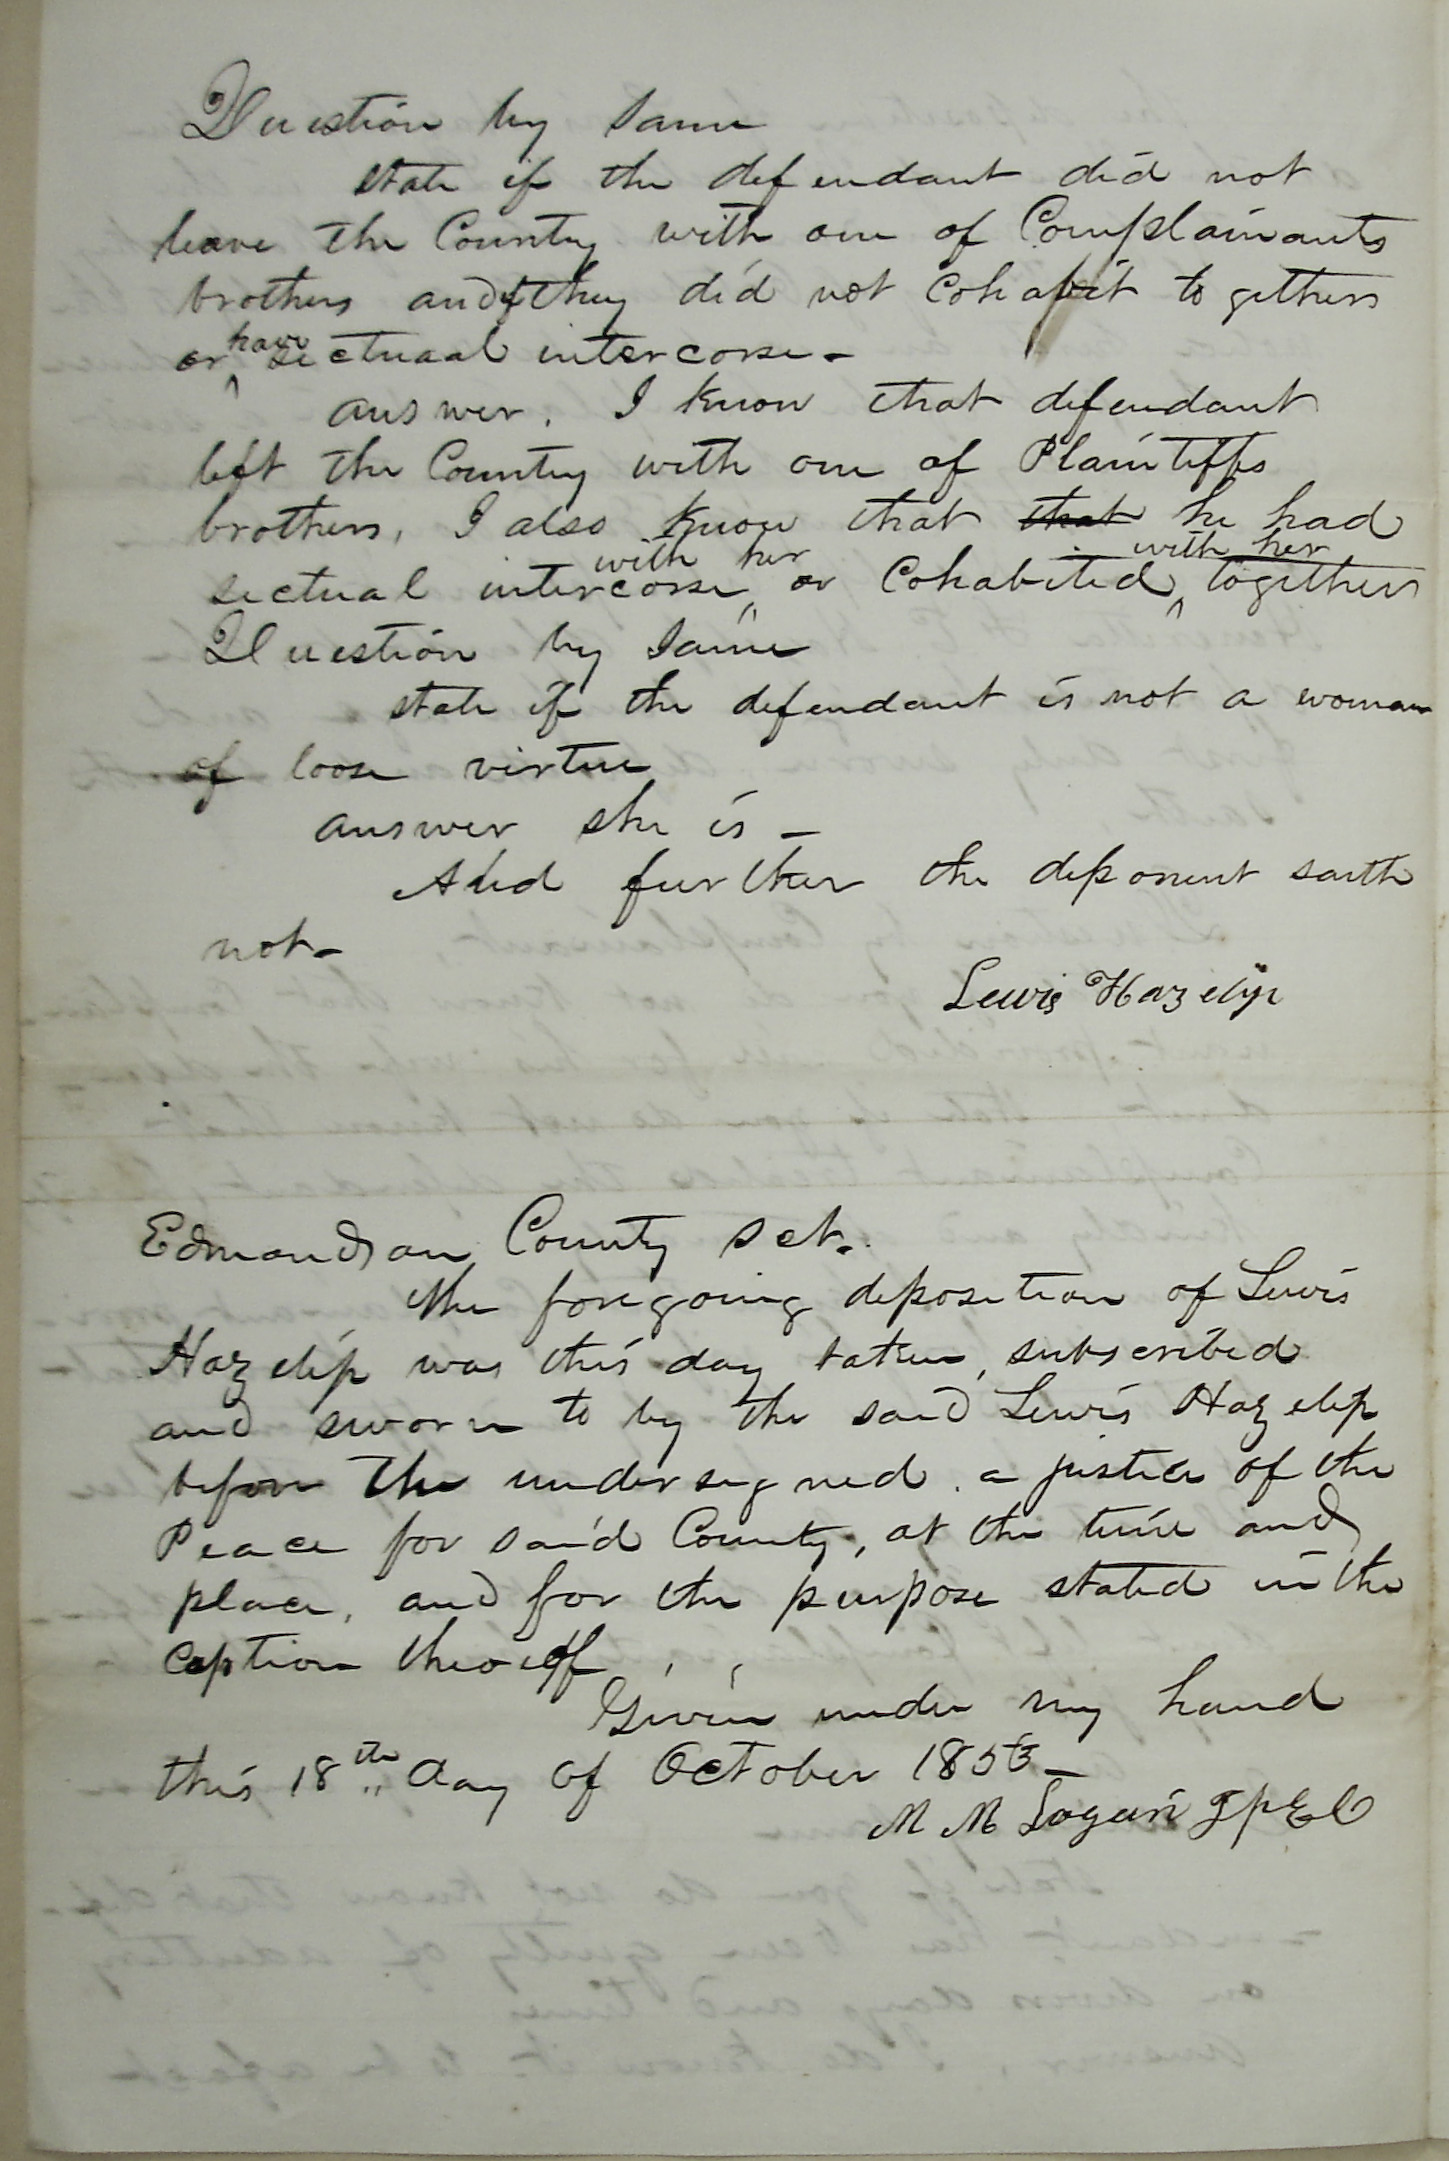 Question by same
state if the defendant did not
leave the County with one of Complainants
brothers and if they did not Cohabit to gethers
or have sectuaal intercorse -
answer. I know that defendant
left the County with one of Plaintiffs
brothers, I also know that that he had
sectual intercorse with her or Cohabited with her together
Question by same
state if the defendant is not a woman
of loose virtue
answer she is -
And further the deponent saith
not -
Lewis Hazelip
Edmondson County sct.
The foregoing deposition of Lewis
Hazelip was this day taken, subscribed
and sworn to by the said Lewis Hazelip
before the undersigned a justice of the
Peace for said County, at the time and
place, and for the purpose stated in the
caption theoreff
Given under my hand
this 18th day of October 1853 -
M M Logan J P E C